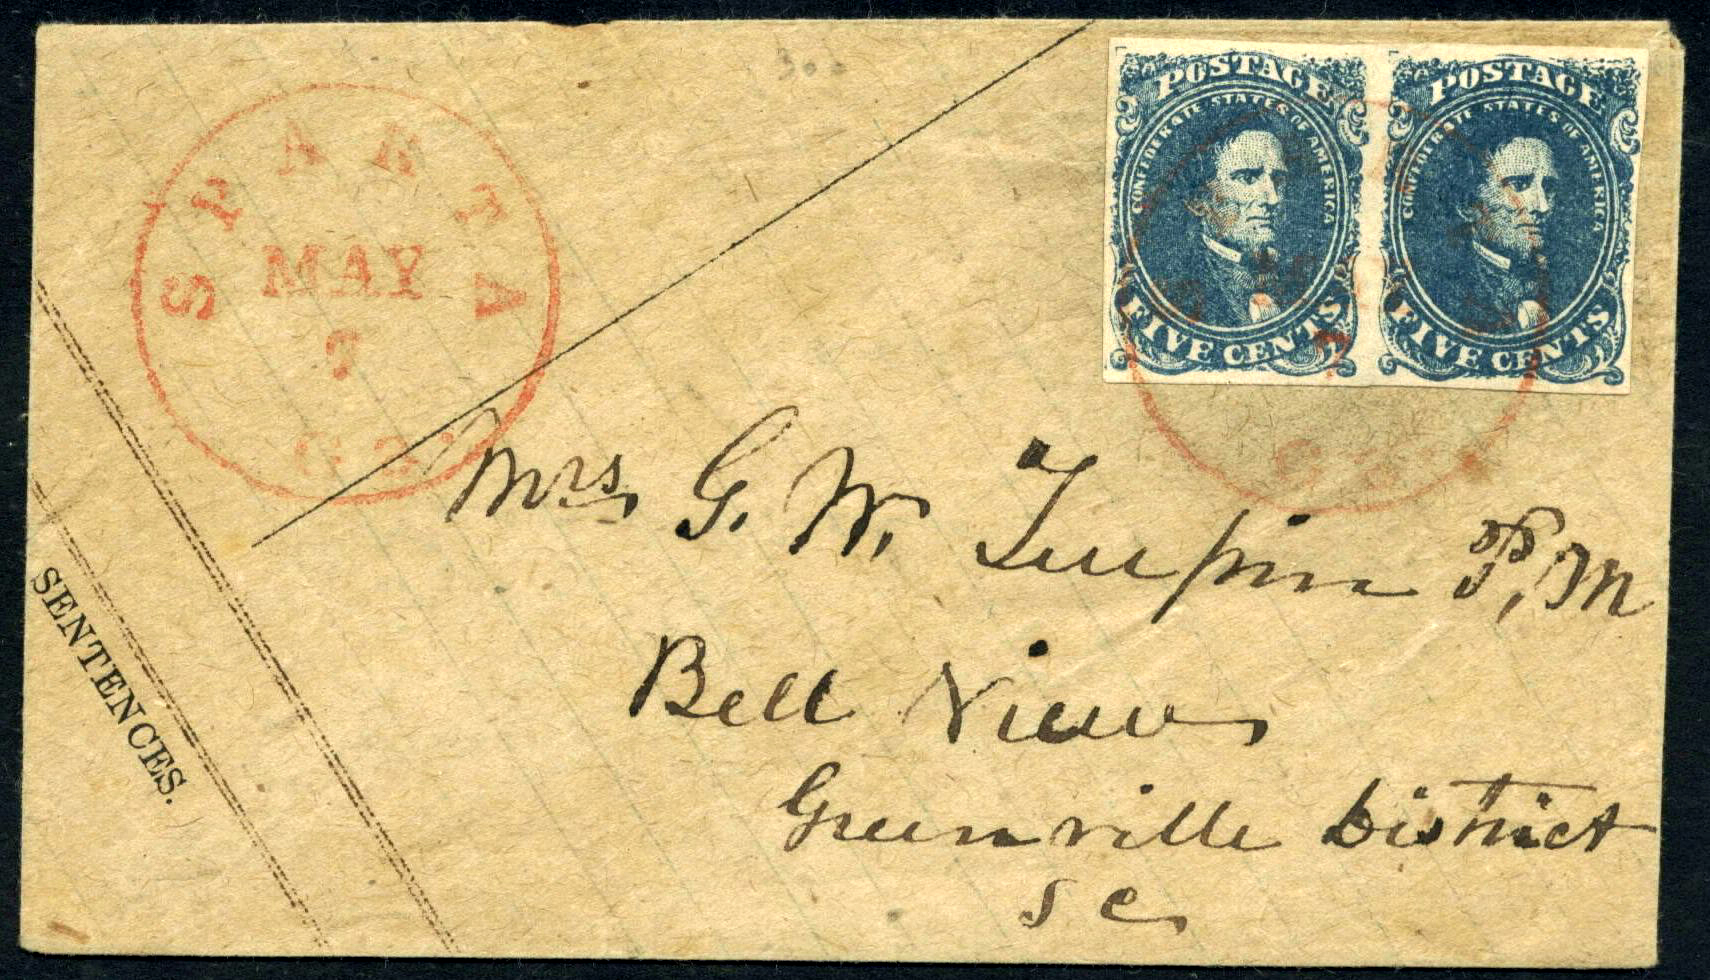 SPARTA
MAY
7
GA
POSTAGE
CONFEDERATE STATES OF AMERICA
FIVE CENTS
POSTAGE
CONFEDERATE STATES OF AMERICA
FIVE CENTS
Mrs G. W. Turpin P, M
Bell View
Greenville District
S C
SENTENCES.